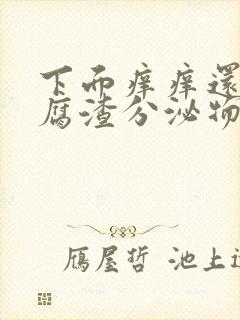 下面痒痒還
腐渣分泌物
雁屋哲 池上遼